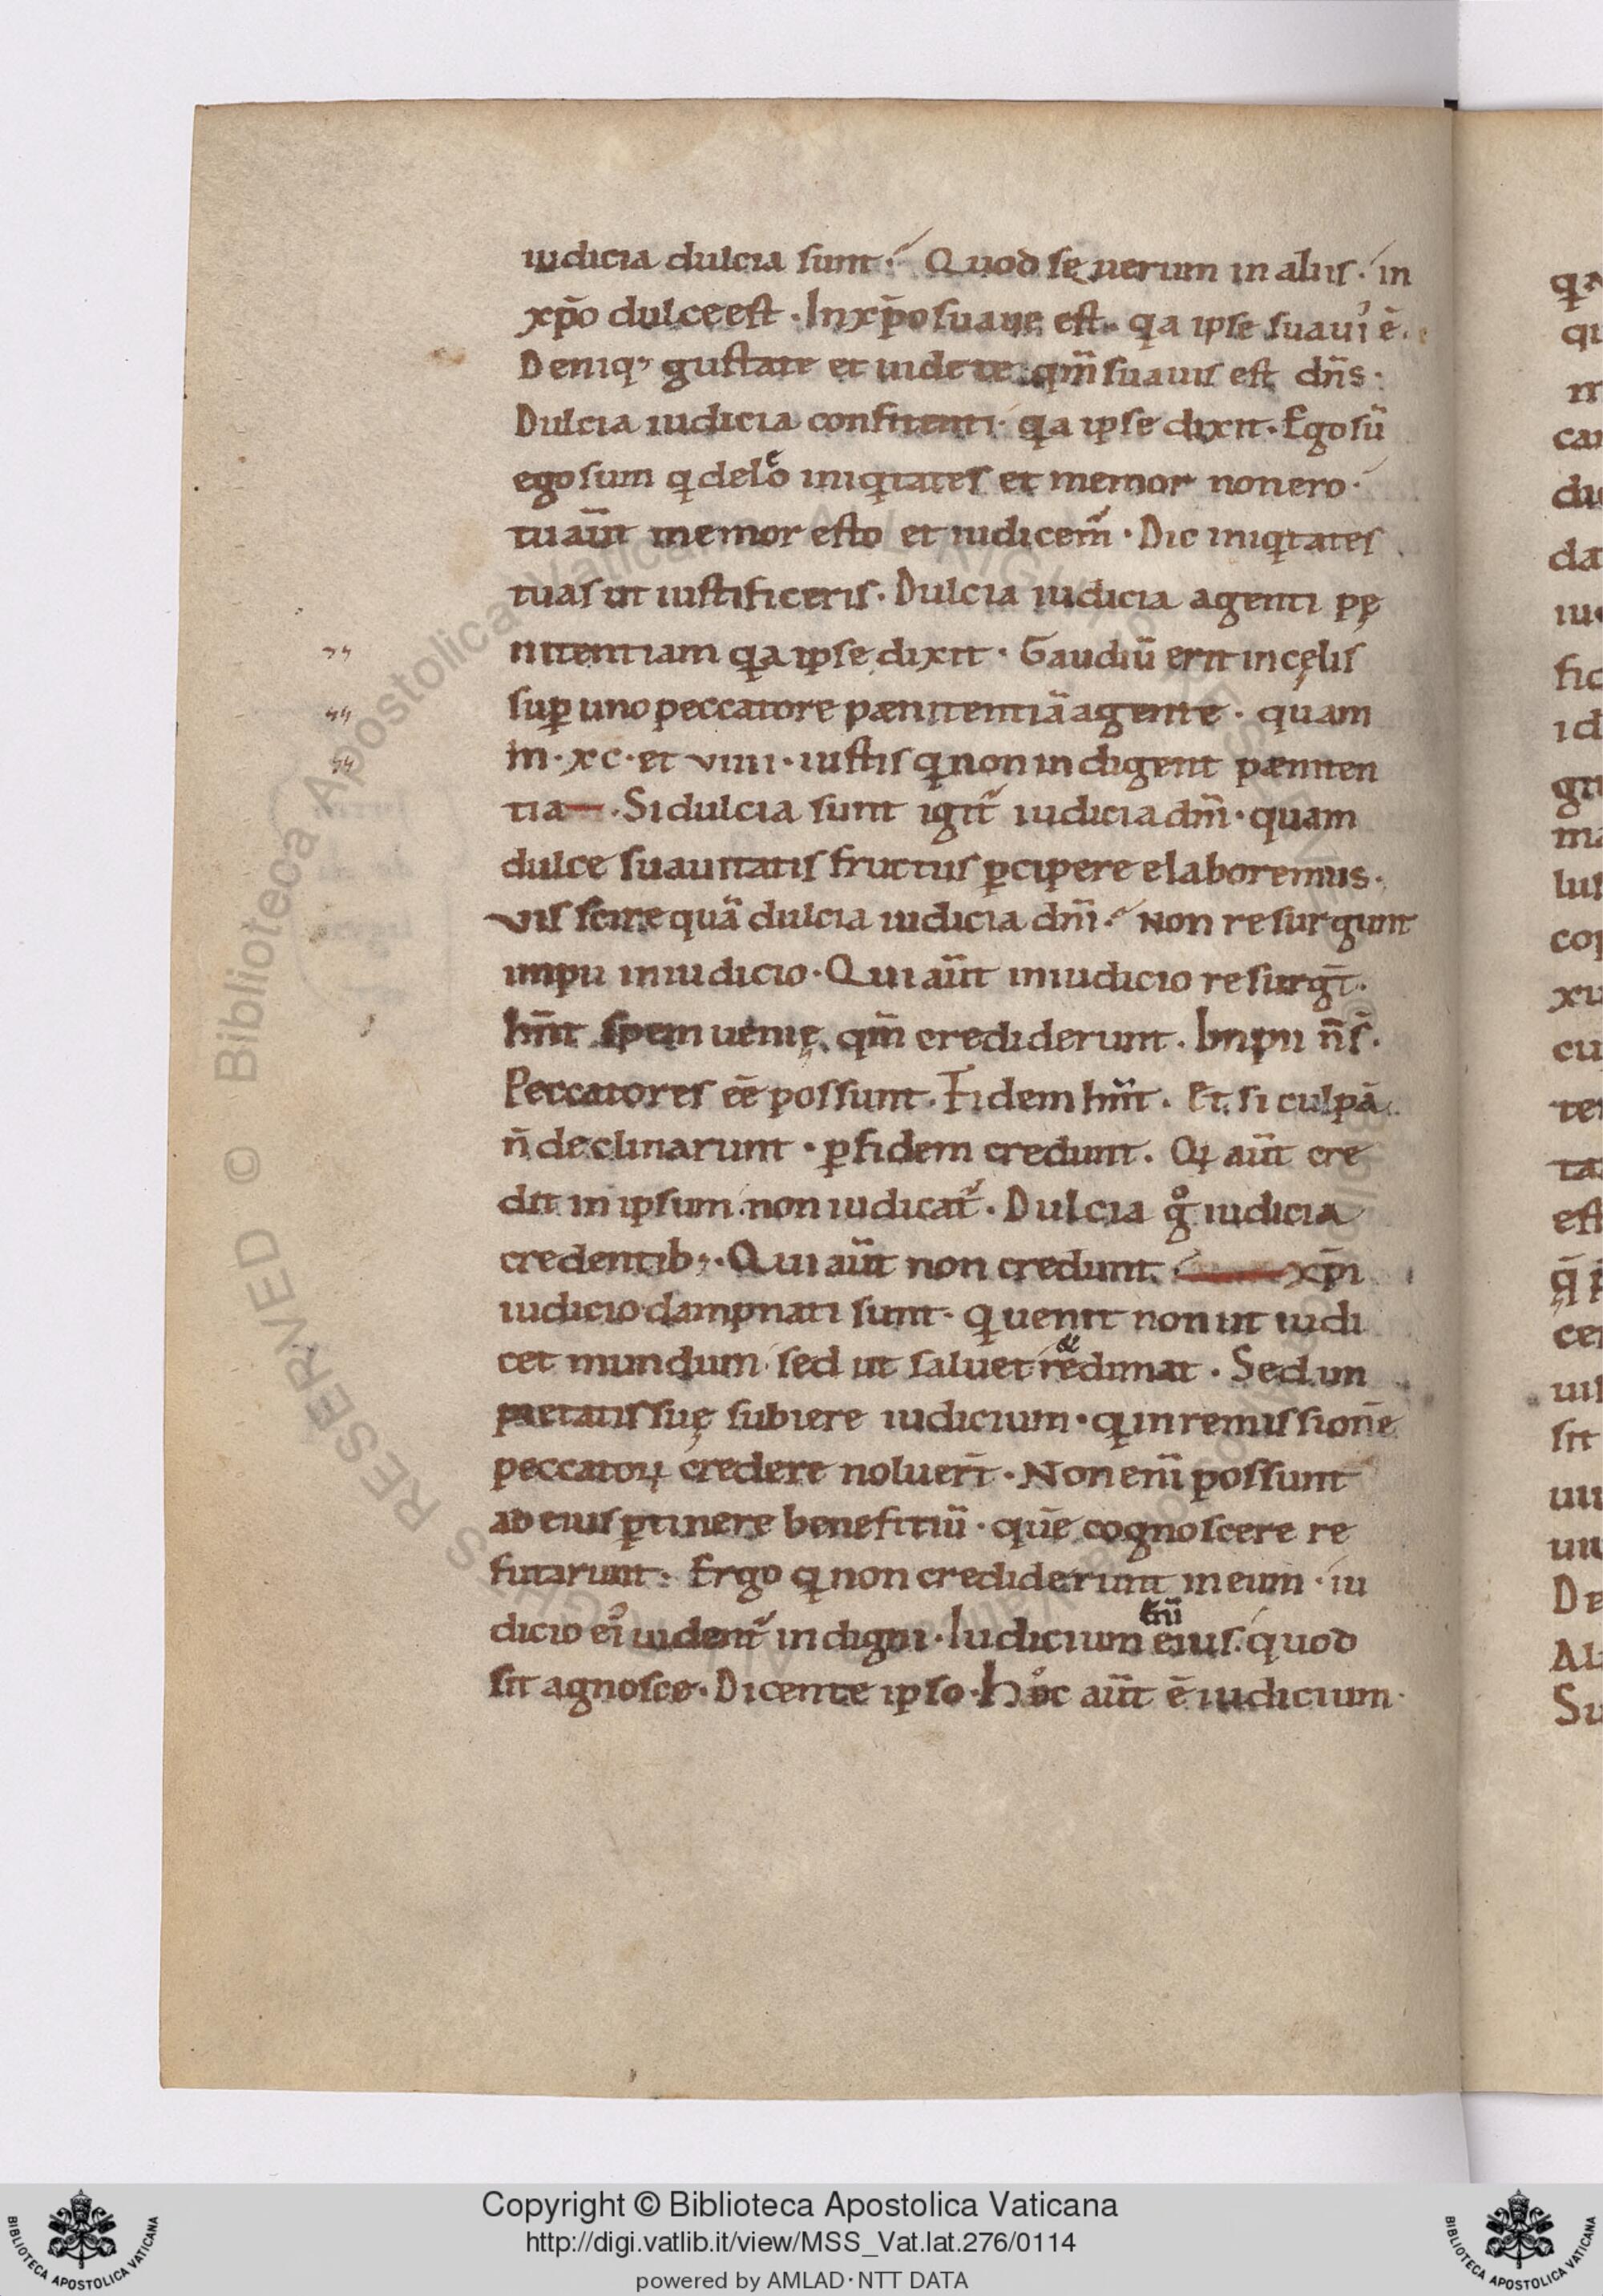 iudicia dulcia sunt. Quod sęuerum in aliis. in
xp̄o dulce est. In xp̄o suaue est. qa ipse suauı᾽ ē.
Deniq; gustate et uidete qm̄ suauis est dn̄s.
Dulcia iudicia confitenti. qa ipse dixit. Ego sū
ego sum q deleo iniqtates et memor non ero.
tu aūt memor esto et iudicem᷑. Dic iniqtates
tuas ut iustificeris. Dulcia iudicia agenti pę
nitentiam qa ipse dixit. Gaudiū erit in cęlis
suꝑ uno peccatore pænitentiā agente. quam
in. xc. et viiii. iustis q non indigent pæniten
tia. Si dulcia sunt igit᷑ iudicia dn̄i. quam
dulce suauitatis fructus ꝑcipere elaboremus.
vis scire quā dulcia iudicia dn̄i. Non resurgunt
impii in iudicio. Qui aūt in iudicio resurgt̄.
hn̄t spem uenię, qm̄ crediderunt. Impii n̄ s̄.
Peccatores eē possunt. Fidem hn̄t. Et si culpā
n̄ declinarunt. ꝑ fidem credunt. Q aūt cre
dit in ipsum. non iudicat᷑. Dulcia gͦ iudicia
credentib;. Qui aūt non credunt. xp̄i
iudicio dampnati sunt. q uenit non ut iudi
cet mundum. sed ut saluet & redimat. Sed im
pietatis suę subiere iudicium. q in remissionē
peccatoꝝ credere noluert̄. Non eni᷑ possunt
ad eius ꝑtinere benefitiū. quē cognoscere re
futarunt. Ergo q non crediderunt in eum. iu
dicio ei᾽ uident᷑ indigni. Iudicium tn̄ eius. quod
sit agnosce. Dicente ipso. Hoc aūt ē iudicium.
Copyright © Biblioteca Apostolica Vaticana
http://digi.vatlib.it/view/MSS_Vat.lat.276/0114
powered by AMLAD·NTT DATA